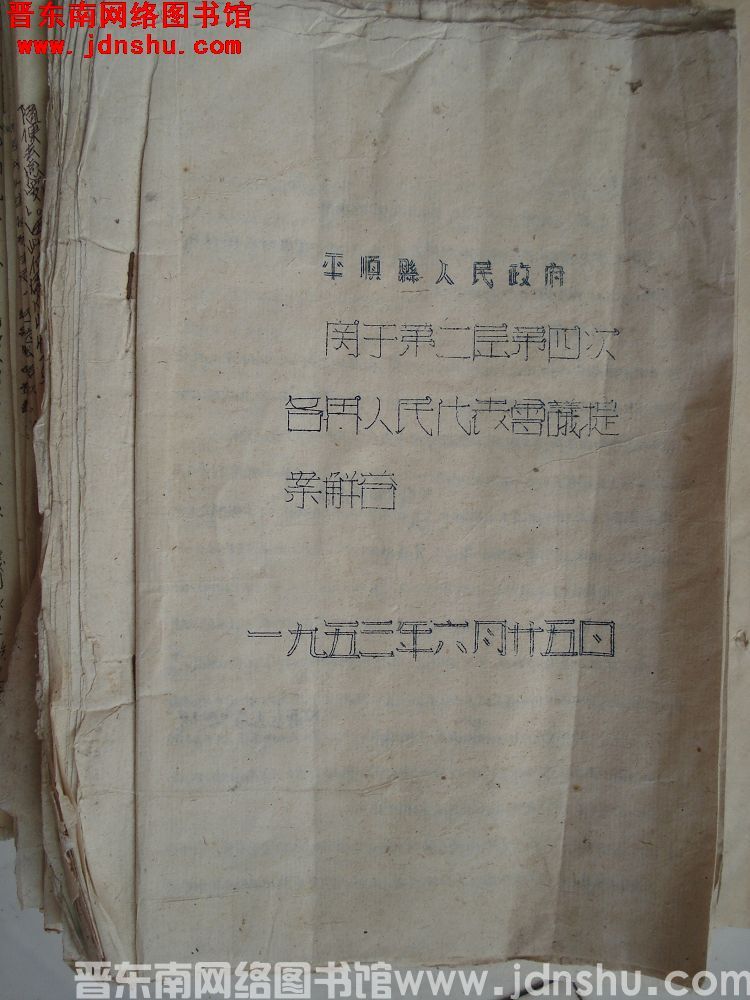 晋东南网络图书馆
www.jdnshu.com
平順縣人民政府
関于第二届第四次
各界人民代表會議提
案解答
一九五三年六月廿五日
晋东南网络图书馆www.jdnshu.com